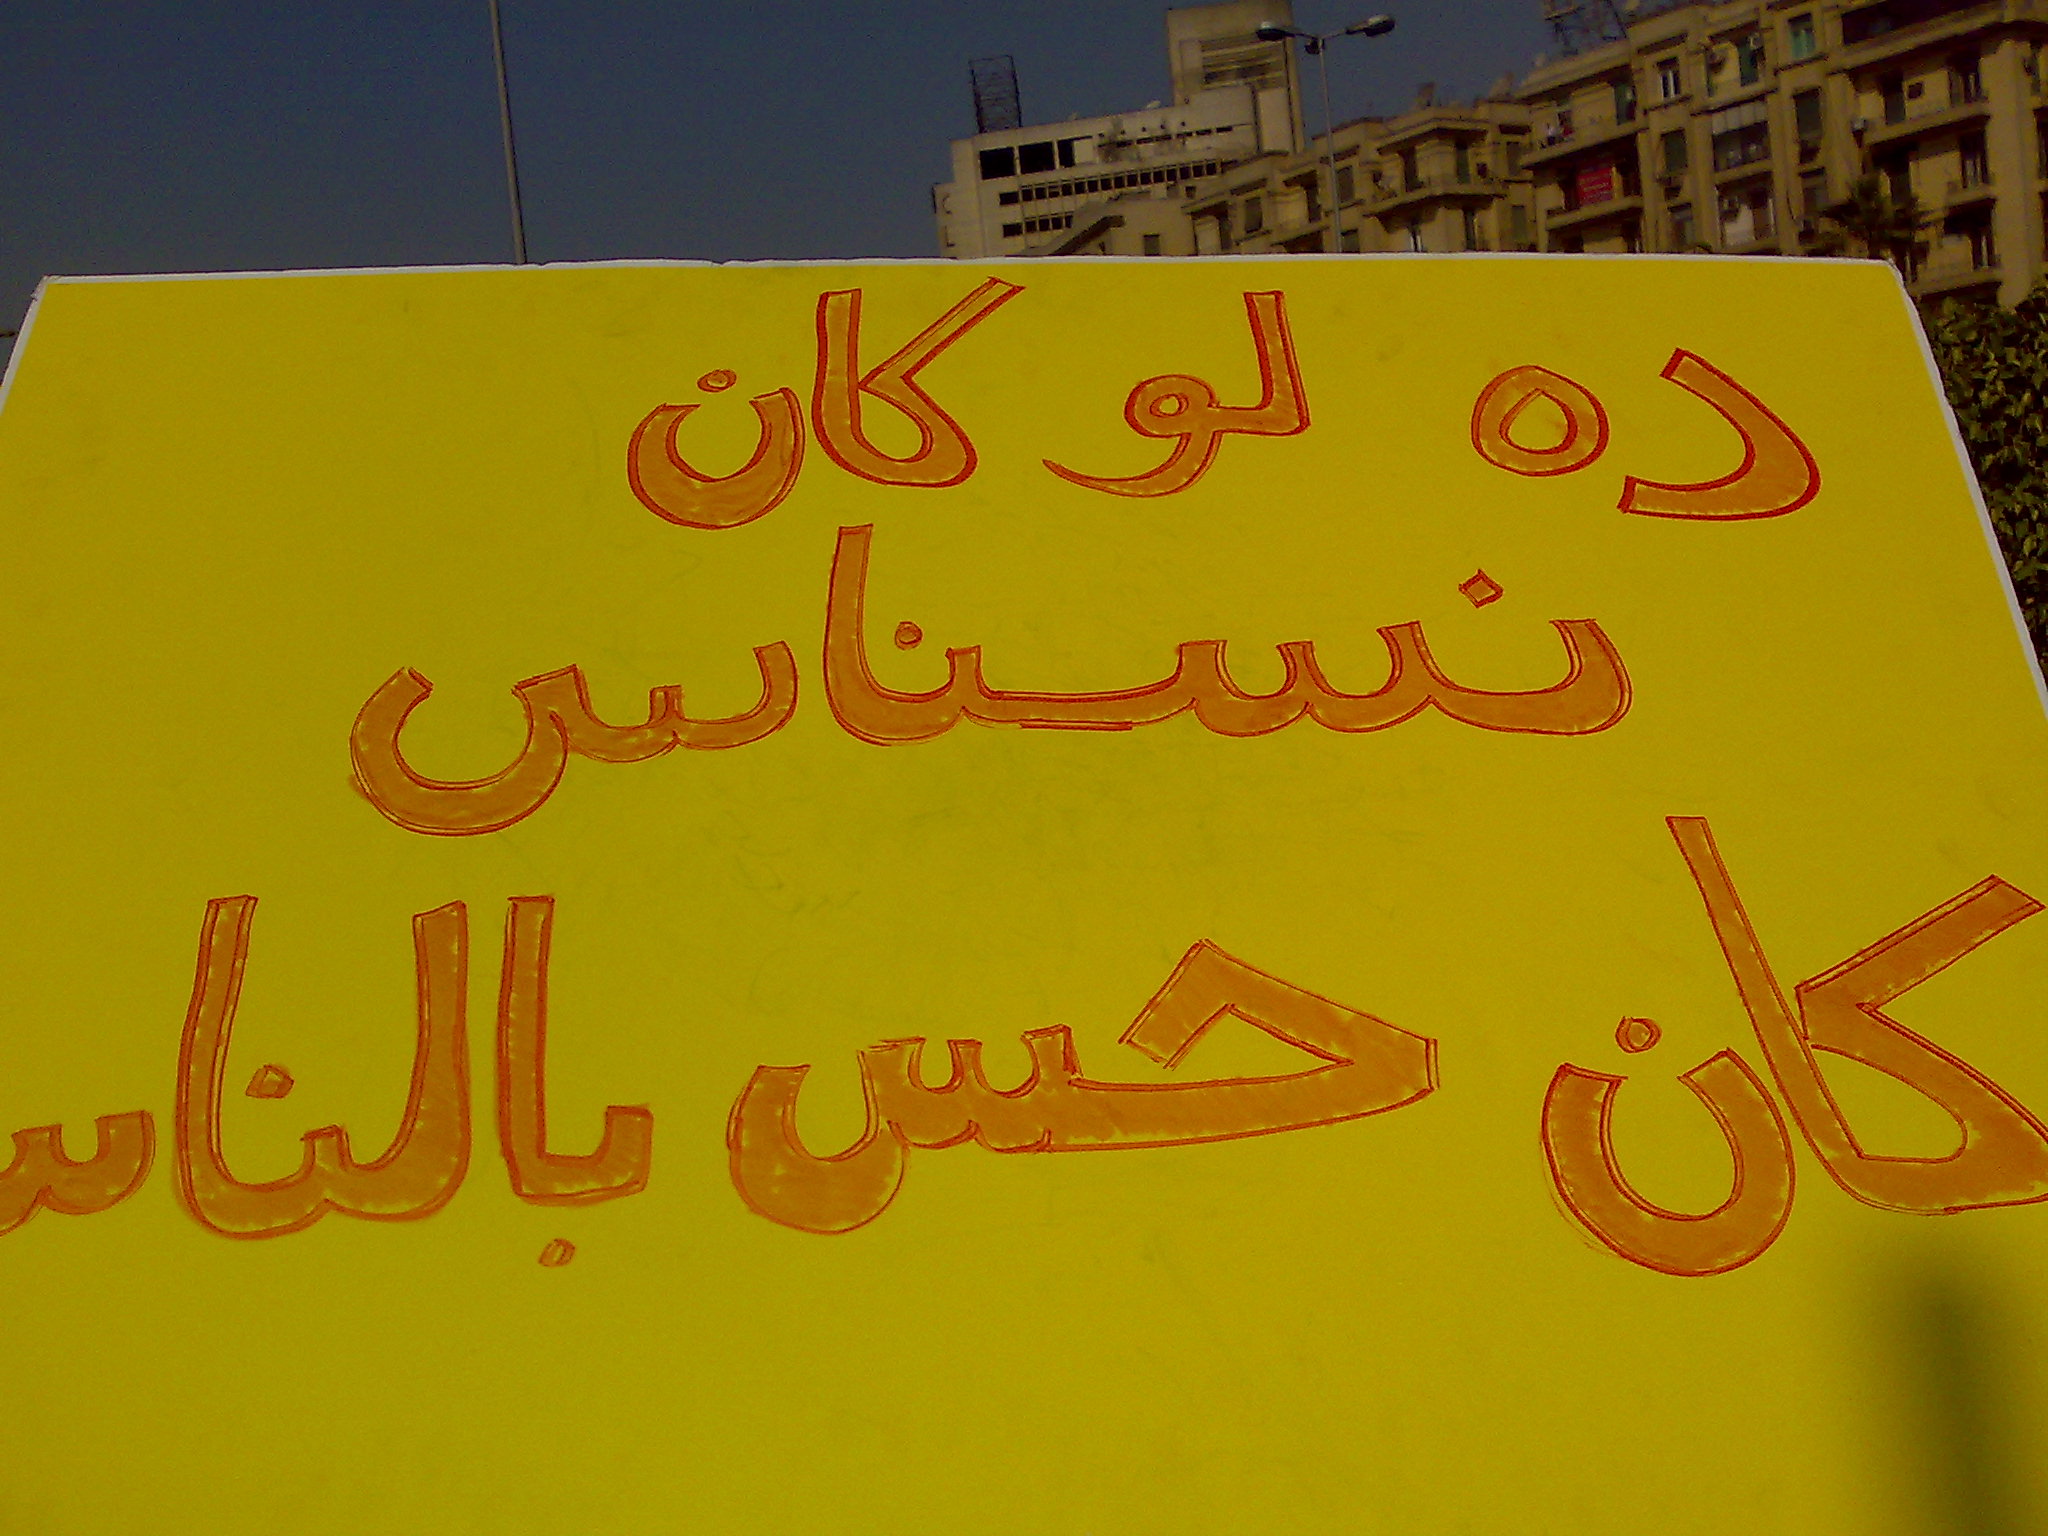 ده لو كان
نسناس
كان حس بالناس